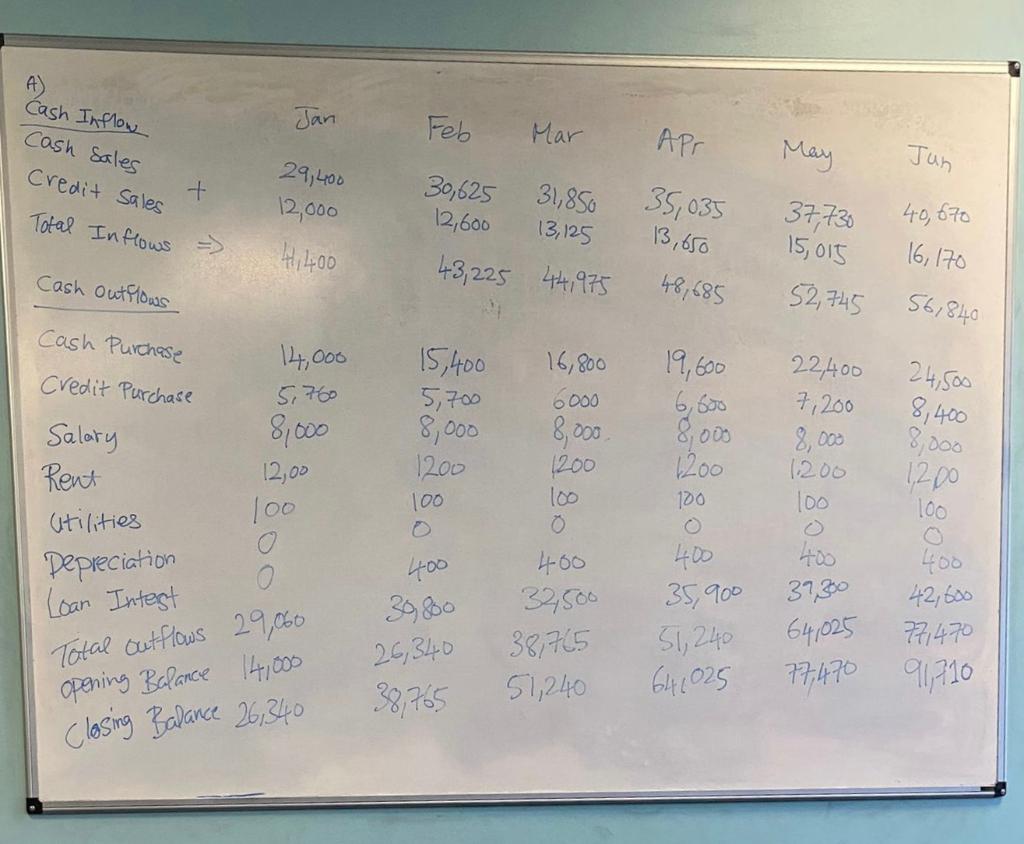 A)
Cash Inflow Jan Feb Mar APr May Jun
Cash Sales 29,400 30,625 31,850 35,035 37,730 40,670
Credit Sales + 12,000 12,600 13,125 13,650 15,015 16,170
Total Inflows => 41,400 43,225 44,975 48,685 52,745 56,840
Cash Outflows
Cash Purchase 14,000 15,400 16,800 19,600 22,400 24,500
Credit Purchase 5,760 5,700 6000 6,600 7,200 8,400
Salary 8,000 8,000 8,000 8,000 8,000 8,000
Rent 12,00 1200 1200 1,200 1,200 1,200
Utilities 100 100 100 100 100 100
Depreciation 0 0 0 0 0 0
Loan Intest 0 400 400 400 400 400
Total Outflows 29,060 30,800 32,500 35,900 39,300 42,600
Opening Balance 14,000 26,340 38,765 51,240 64,025 77,470
Closing Balance 26,340 38,765 51,240 64,025 77,470 91,710